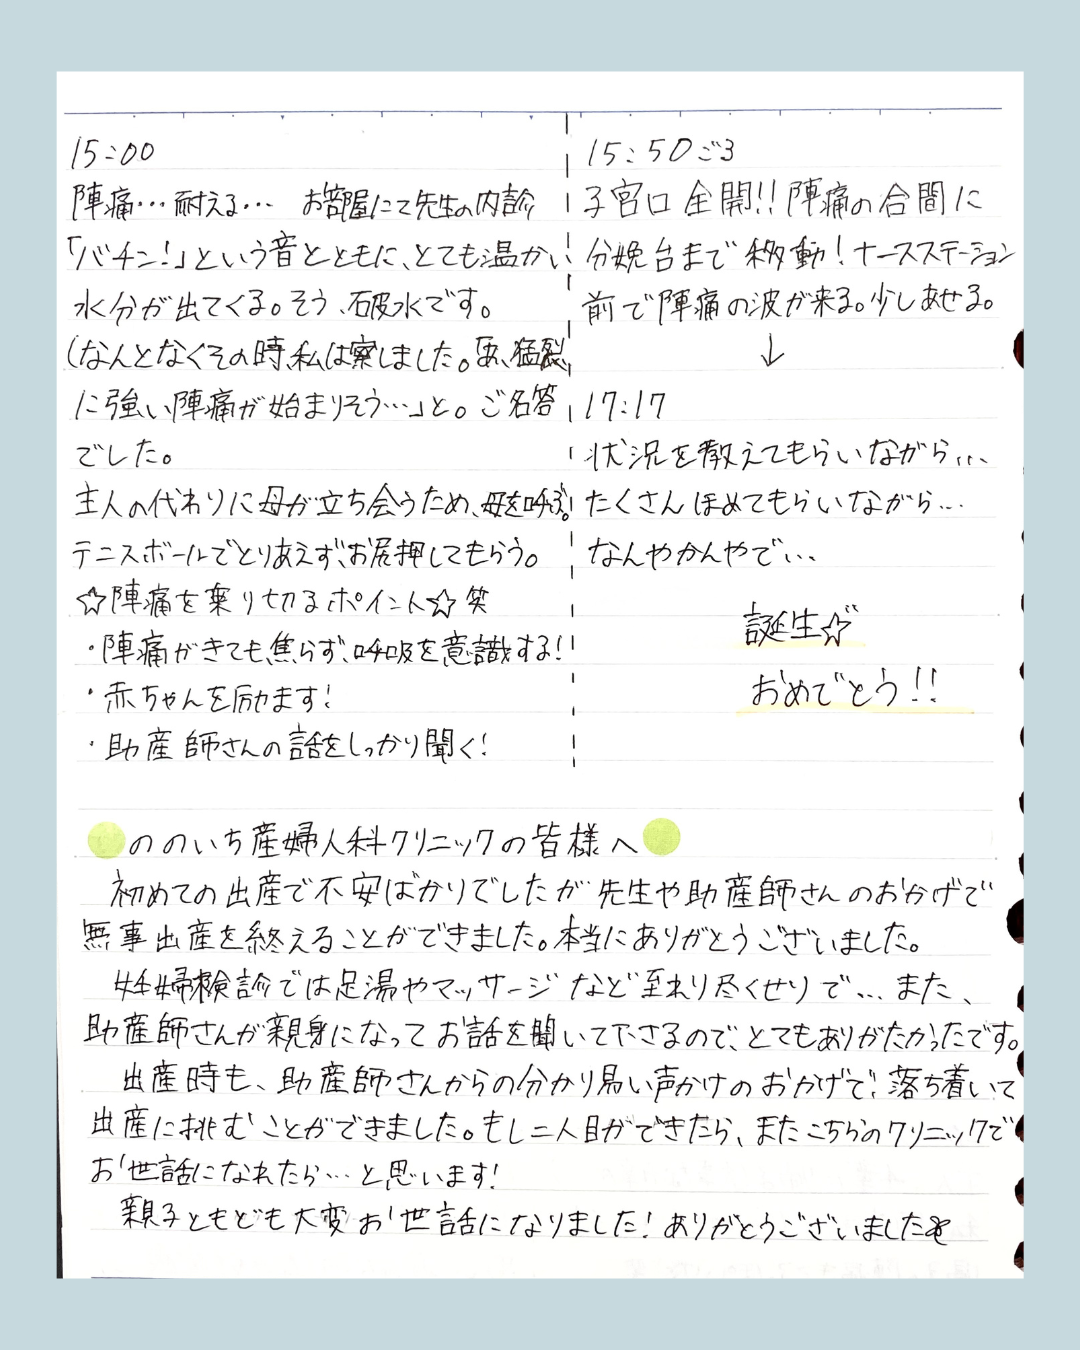 15:00
陣痛…耐える… お部屋にて先生の内診
「バチン!」という音とともに、とても温かい
水分が出てくる。そう、破水です。
(なんとなくその時、私は察しました。「あ、猛烈
に強い陣痛が始まりそう…」と。ご名答
でした。
主人の代わりに母が立ち会うため、母を呼ぶ。
テニスボールでとりあえず、お尻押してもらう。
☆陣痛を乗り切るポイント☆笑
・陣痛がきても、焦らず、呼吸を意識する!
・赤ちゃんを励ます!
・助産師さんの話をしっかり聞く!
15:50ごろ
子宮口全開!!陣痛の合間に
分娩台まで移動!ナースステーション
前で陣痛の波が来る。少しあせる。
↓
17:17
状況を教えてもらいながら...
たくさんほめてもらいながら…
なんやかんやで...
誕生☆
おめでとう!!
ののいち産婦人科クリニックの皆様へ
初めての出産で不安ばかりでしたが先生や助産師さんのおかげで
無事出産を終えることができました。本当にありがとうございました。
妊婦検診では足湯やマッサージなど至れり尽くせりで…また、
助産師さんが親身になってお話を聞いて下さるので、とてもありがたかったです。
出産時も、助産師さんからの分かり易い声かけのおかげで、落ち着いて
出産に挑むことができました。もし二人目ができたら、またこちらのクリニックで
お世話になれたら…と思います!
親子ともども大変お世話になりました!ありがとうございました